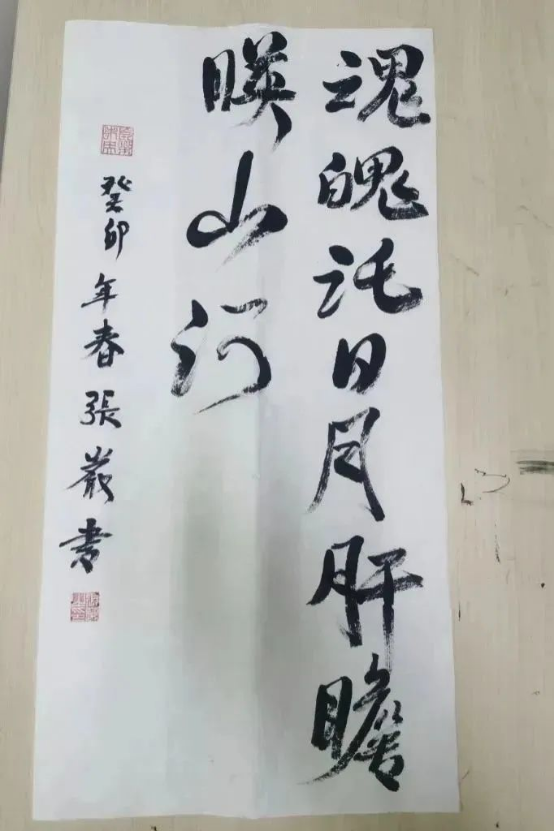 魂魄託日月肝膽
暎山河
癸卯年春張嚴書